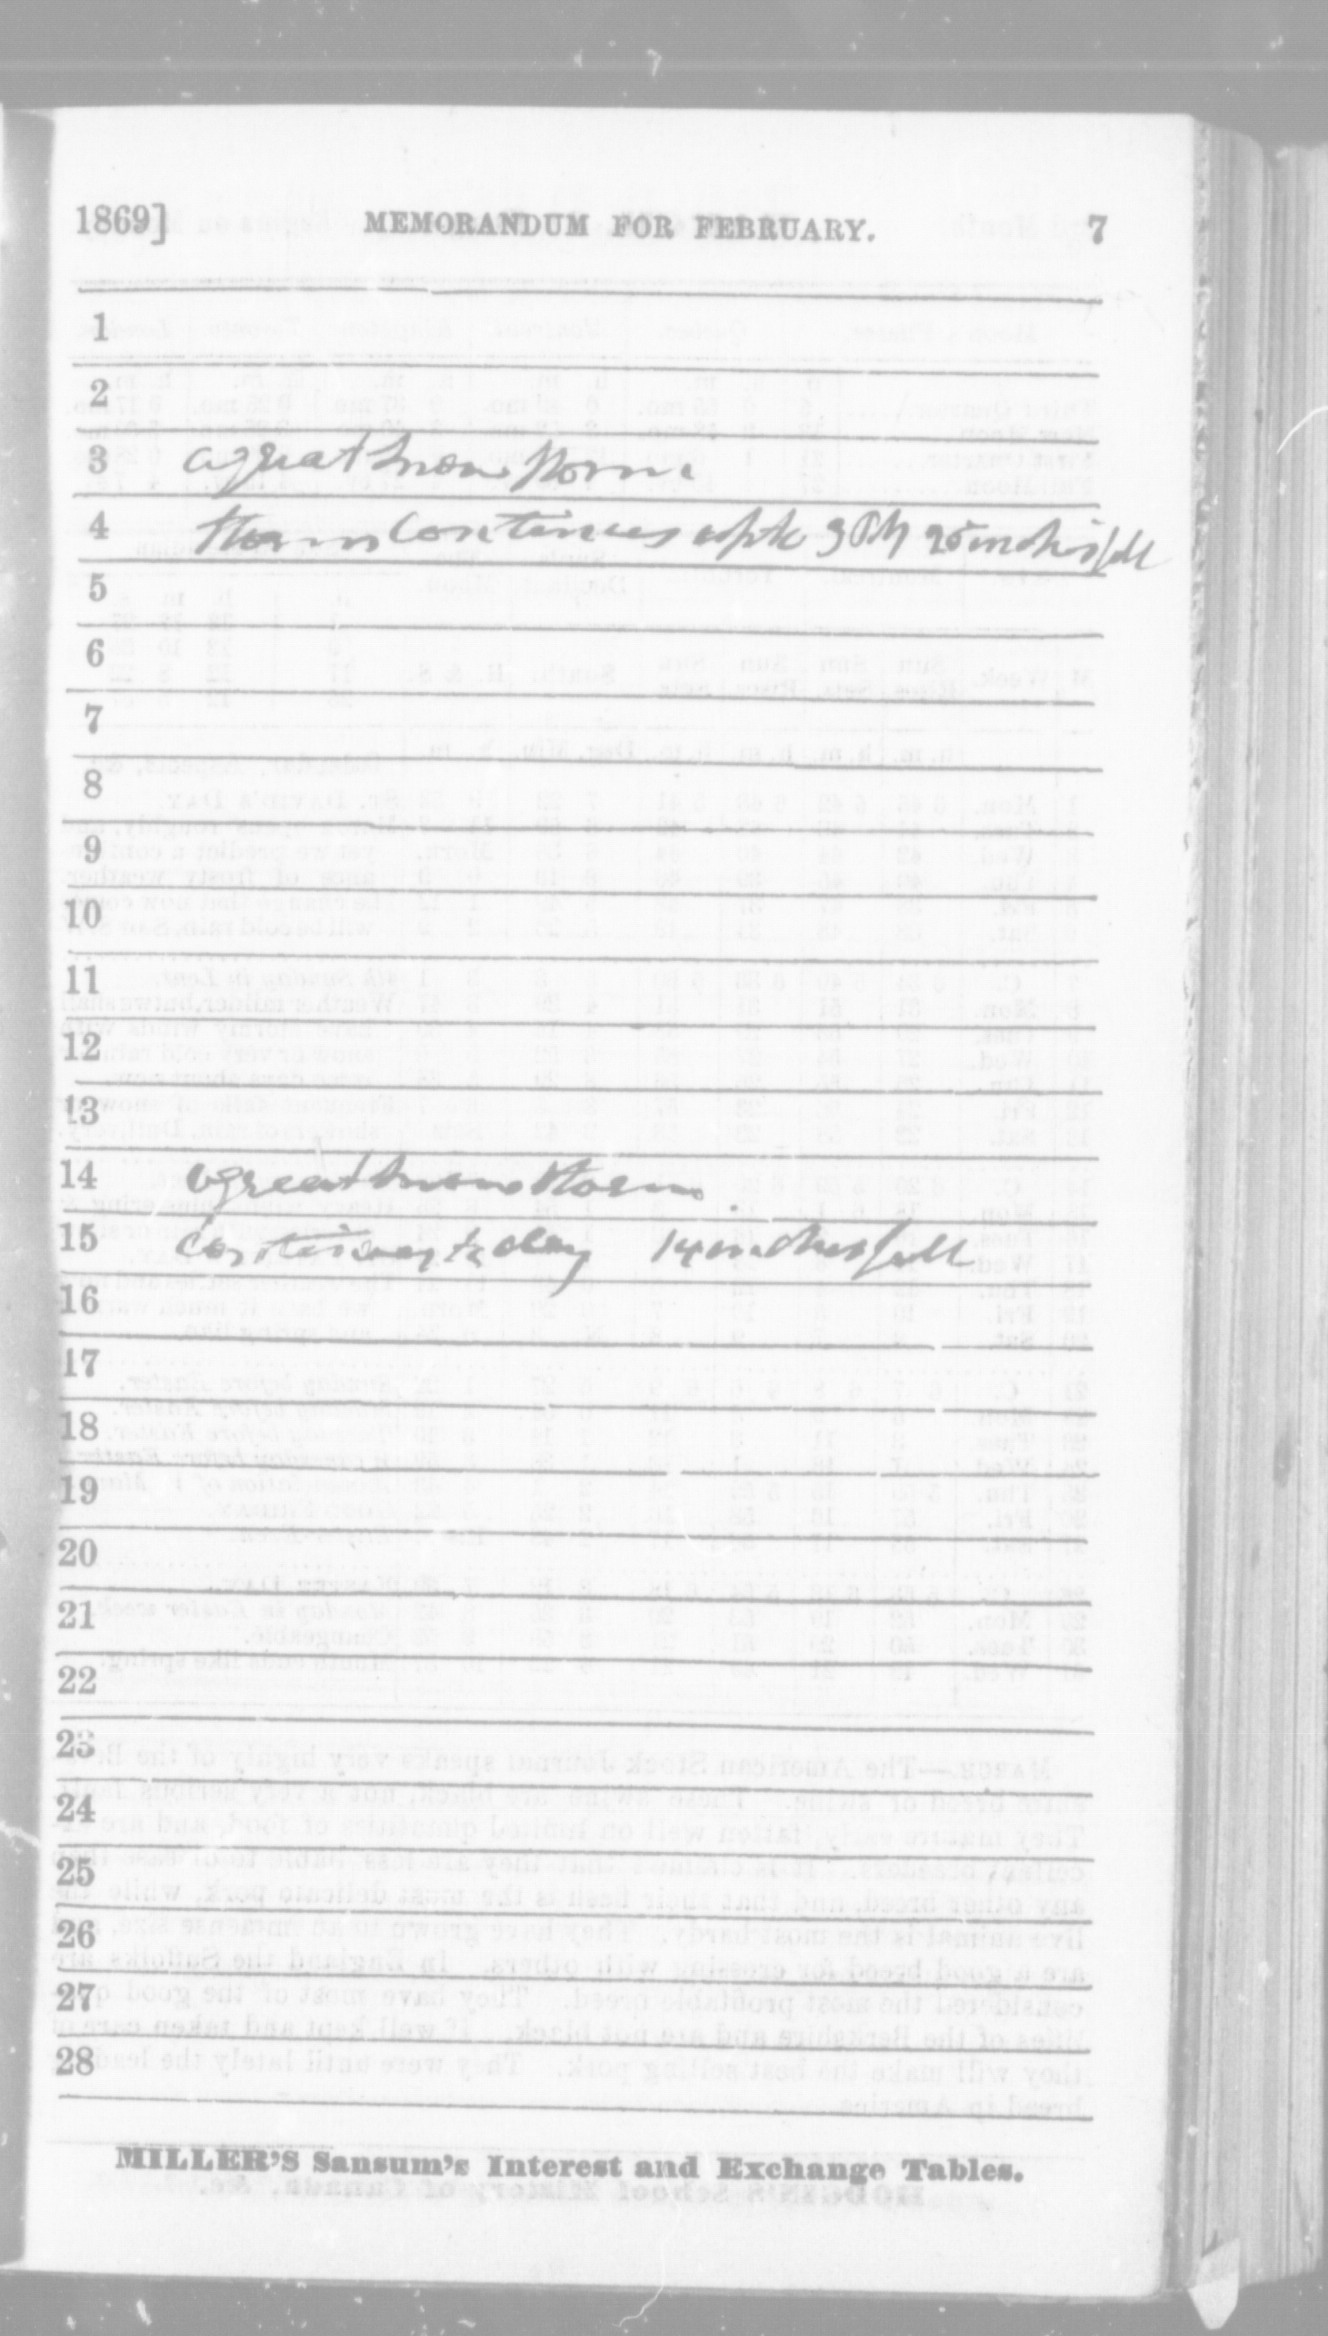 1869] MEMORANDUM FOR FEBRUARY. 7
1
2
3 a great snow storm
4 storm continues up to 3 PM 25 inches fell
5
6
7
8
9
10
11
12
13
14 a great snow storm
15 continuay to day 14 inches fell
16
17
18
19
20
21
22
23
24
25
26
27
28
MILLER'S Sansum's Interest and Exchange Tables.